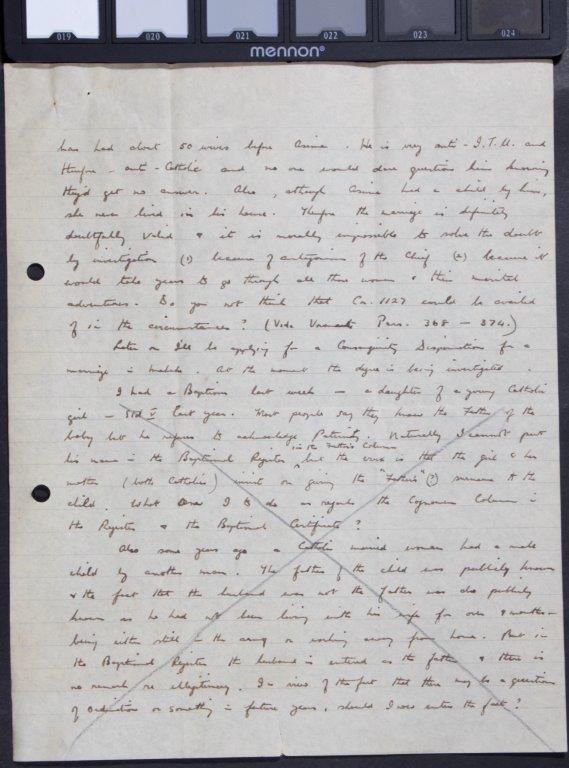 019 020 021 022 023 024
mennon®
has had about 50 wives before Asina. He is very anti-I.T.U. and
therefore - anti-Catholic and no one would dare question him knowing
they'd get no answer. Also, although Asina had a child by him,
she never lived in his house. Therefore the marriage is definitely
doubtfully valid & it is morally impossible to solve the doubt
by investigation (1) because of antagonism of the Chief (2) because it
would take years to go through all these women & their marital
adventures. Do you not think that Ca. 1127 could be availed
of in the circumstances? (Vide Pars. 368 - 374.)
Later on I'll be applying for a Consanguinity Dispensation for a
marriage in . At the moment the degree is being investigated.
I had a Baptism last week - a daughter of a young Catholic
girl - Std V last year. Most people say they know the Father of the
baby but he refuses to acknowledge Paternity. Naturally I cannot put
in the Father's Column
his name in the Baptismal Register but the is that the girl & her
mother (both Catholics) insist on giving the "Father's" (?) surname to the
child. What am I to do as regards the Cognomen Column in
the Register & the Baptismal Certificate?
Also some years ago a Catholic married woman had a male
child by another man. The father of the child was publicly known
& the fact that the husband was not the father was also publicly
known as he had not been living with his wife for over 9 months -
being either still in the army or working away from home. But in
the Baptismal Register the husband is entered as the father & there is
no remark re illegitimacy. In view of the fact that there may be a question
of ordination or something in future years, should I now enter the fact?